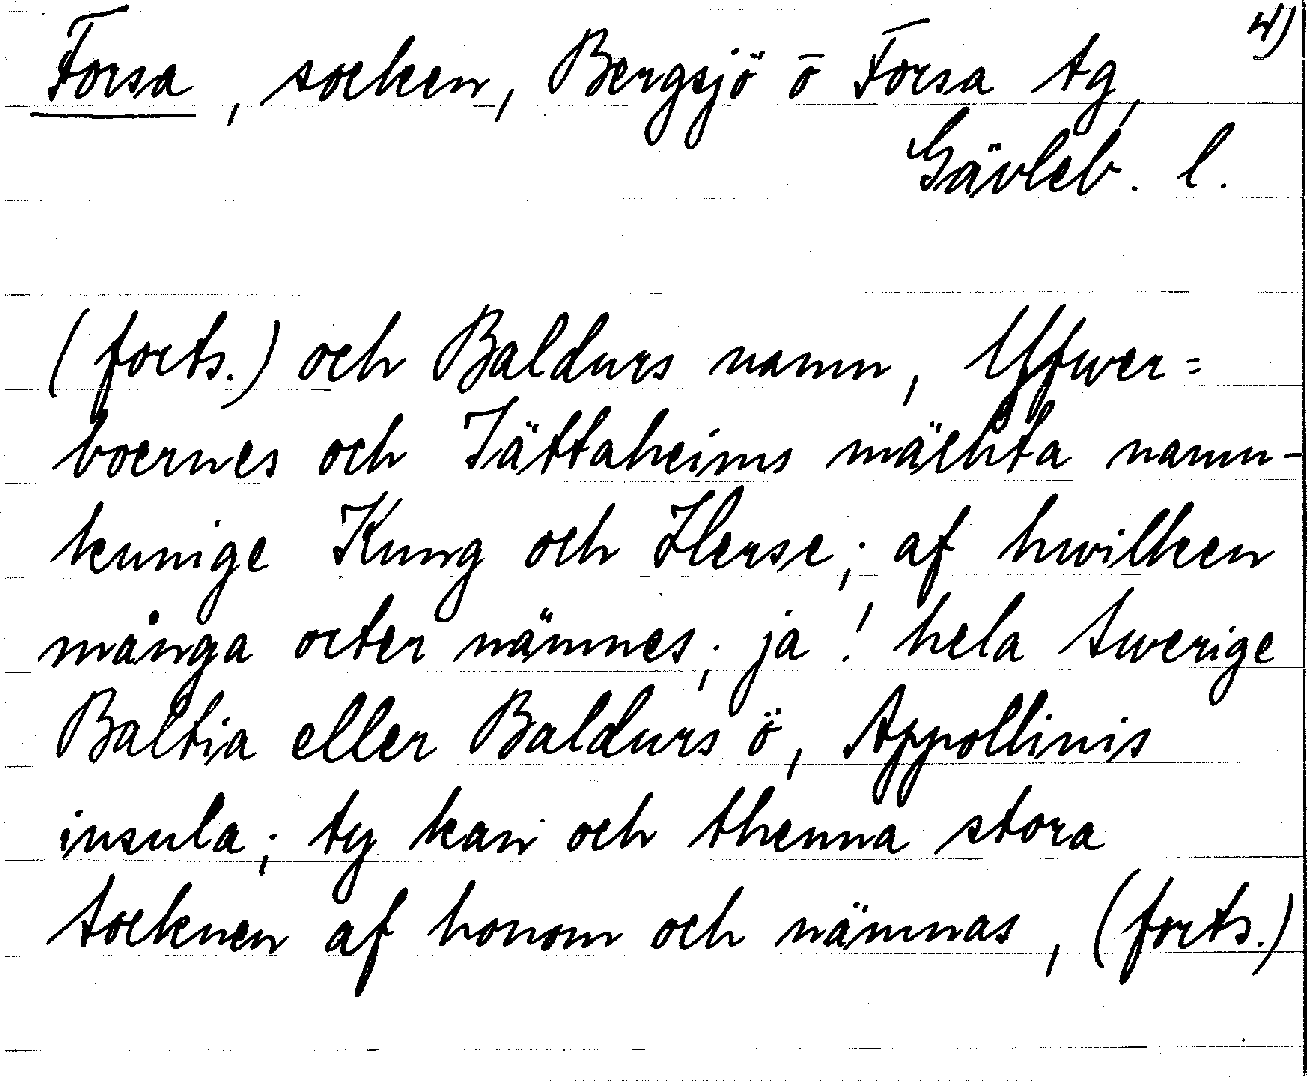 4)
Forsa, socken, Bergsjö o Forsa tg,
Gävleb. l.
(forts.) och Baldurs namn, Yfwer=
boernes och Jättaheims mächta namn-
kunige Kung och Herse; af hwilken
många orter nämnes; ja! hela Swerige
Baltia eller Baldurs ö, Appollinis
insula; ty kan och thenna stora
Socknen af honom och nämnas, (forts.)